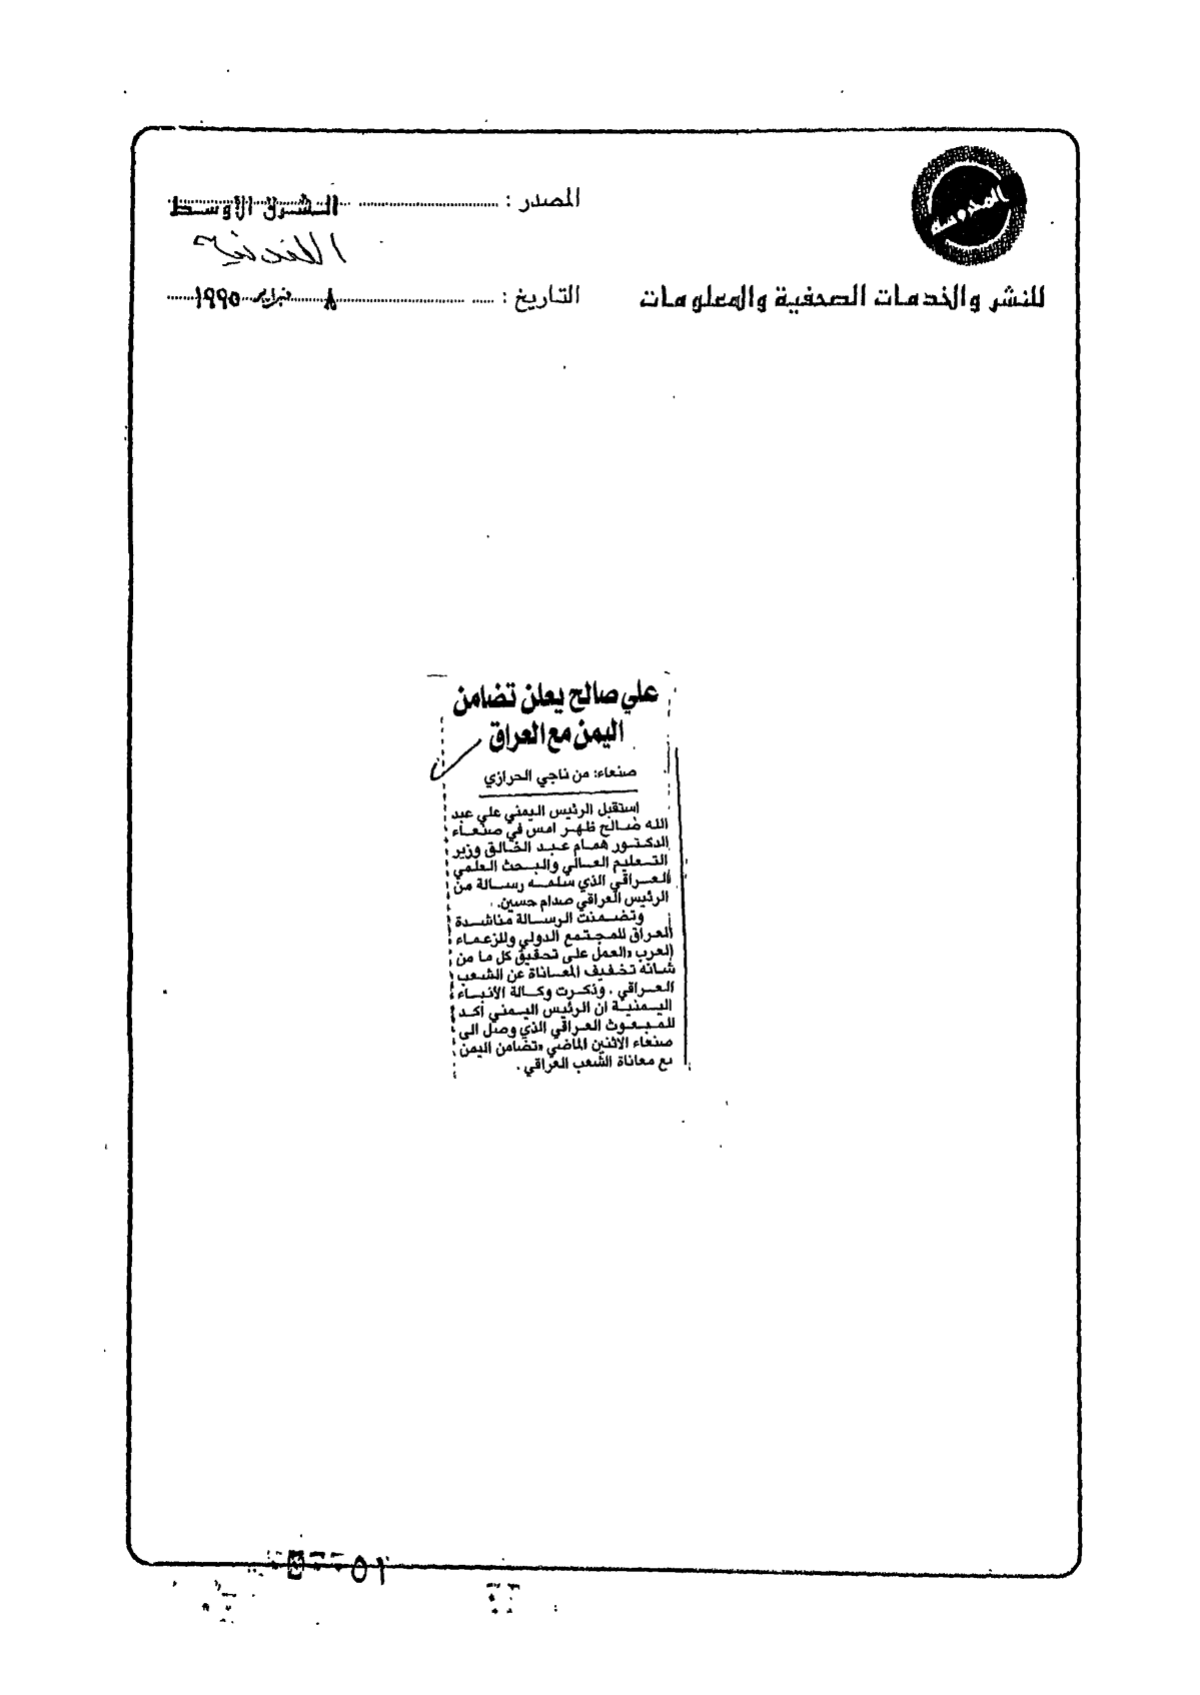 المحروسة
للنشر والخدمات الصحفية والمعلومات
المصدر : الشرق الأوسط
اللندنية
التاريخ : ٨ فبراير ١٩٩٥
علي صالح يعلن تضامن
اليمن مع العراق
صنعاء: من ناجي الحرازي
إستقبل الرئيس اليمني علي عبد
الله صالح ظهر امس في صنعاء
الدكتور همام عبد الخالق وزير
التعليم العالي والبحث العلمي
العراقي الذي سلمه رسالة من
الرئيس العراقي صدام حسين.
وتضمنت الرسالة مناشدة
العراق للمجتمع الدولي وللزعماء
العرب «العمل على تحقيق كل ما من
شانه تخفيف المعاناة عن الشعب
العراقي. وذكرت وكالة الأنباء
اليمنية ان الرئيس اليمني أكد
للمبعوث العراقي الذي وصل الى
صنعاء الاثنين الماضي «تضامن اليمن
مع معاناة الشعب العراقي.